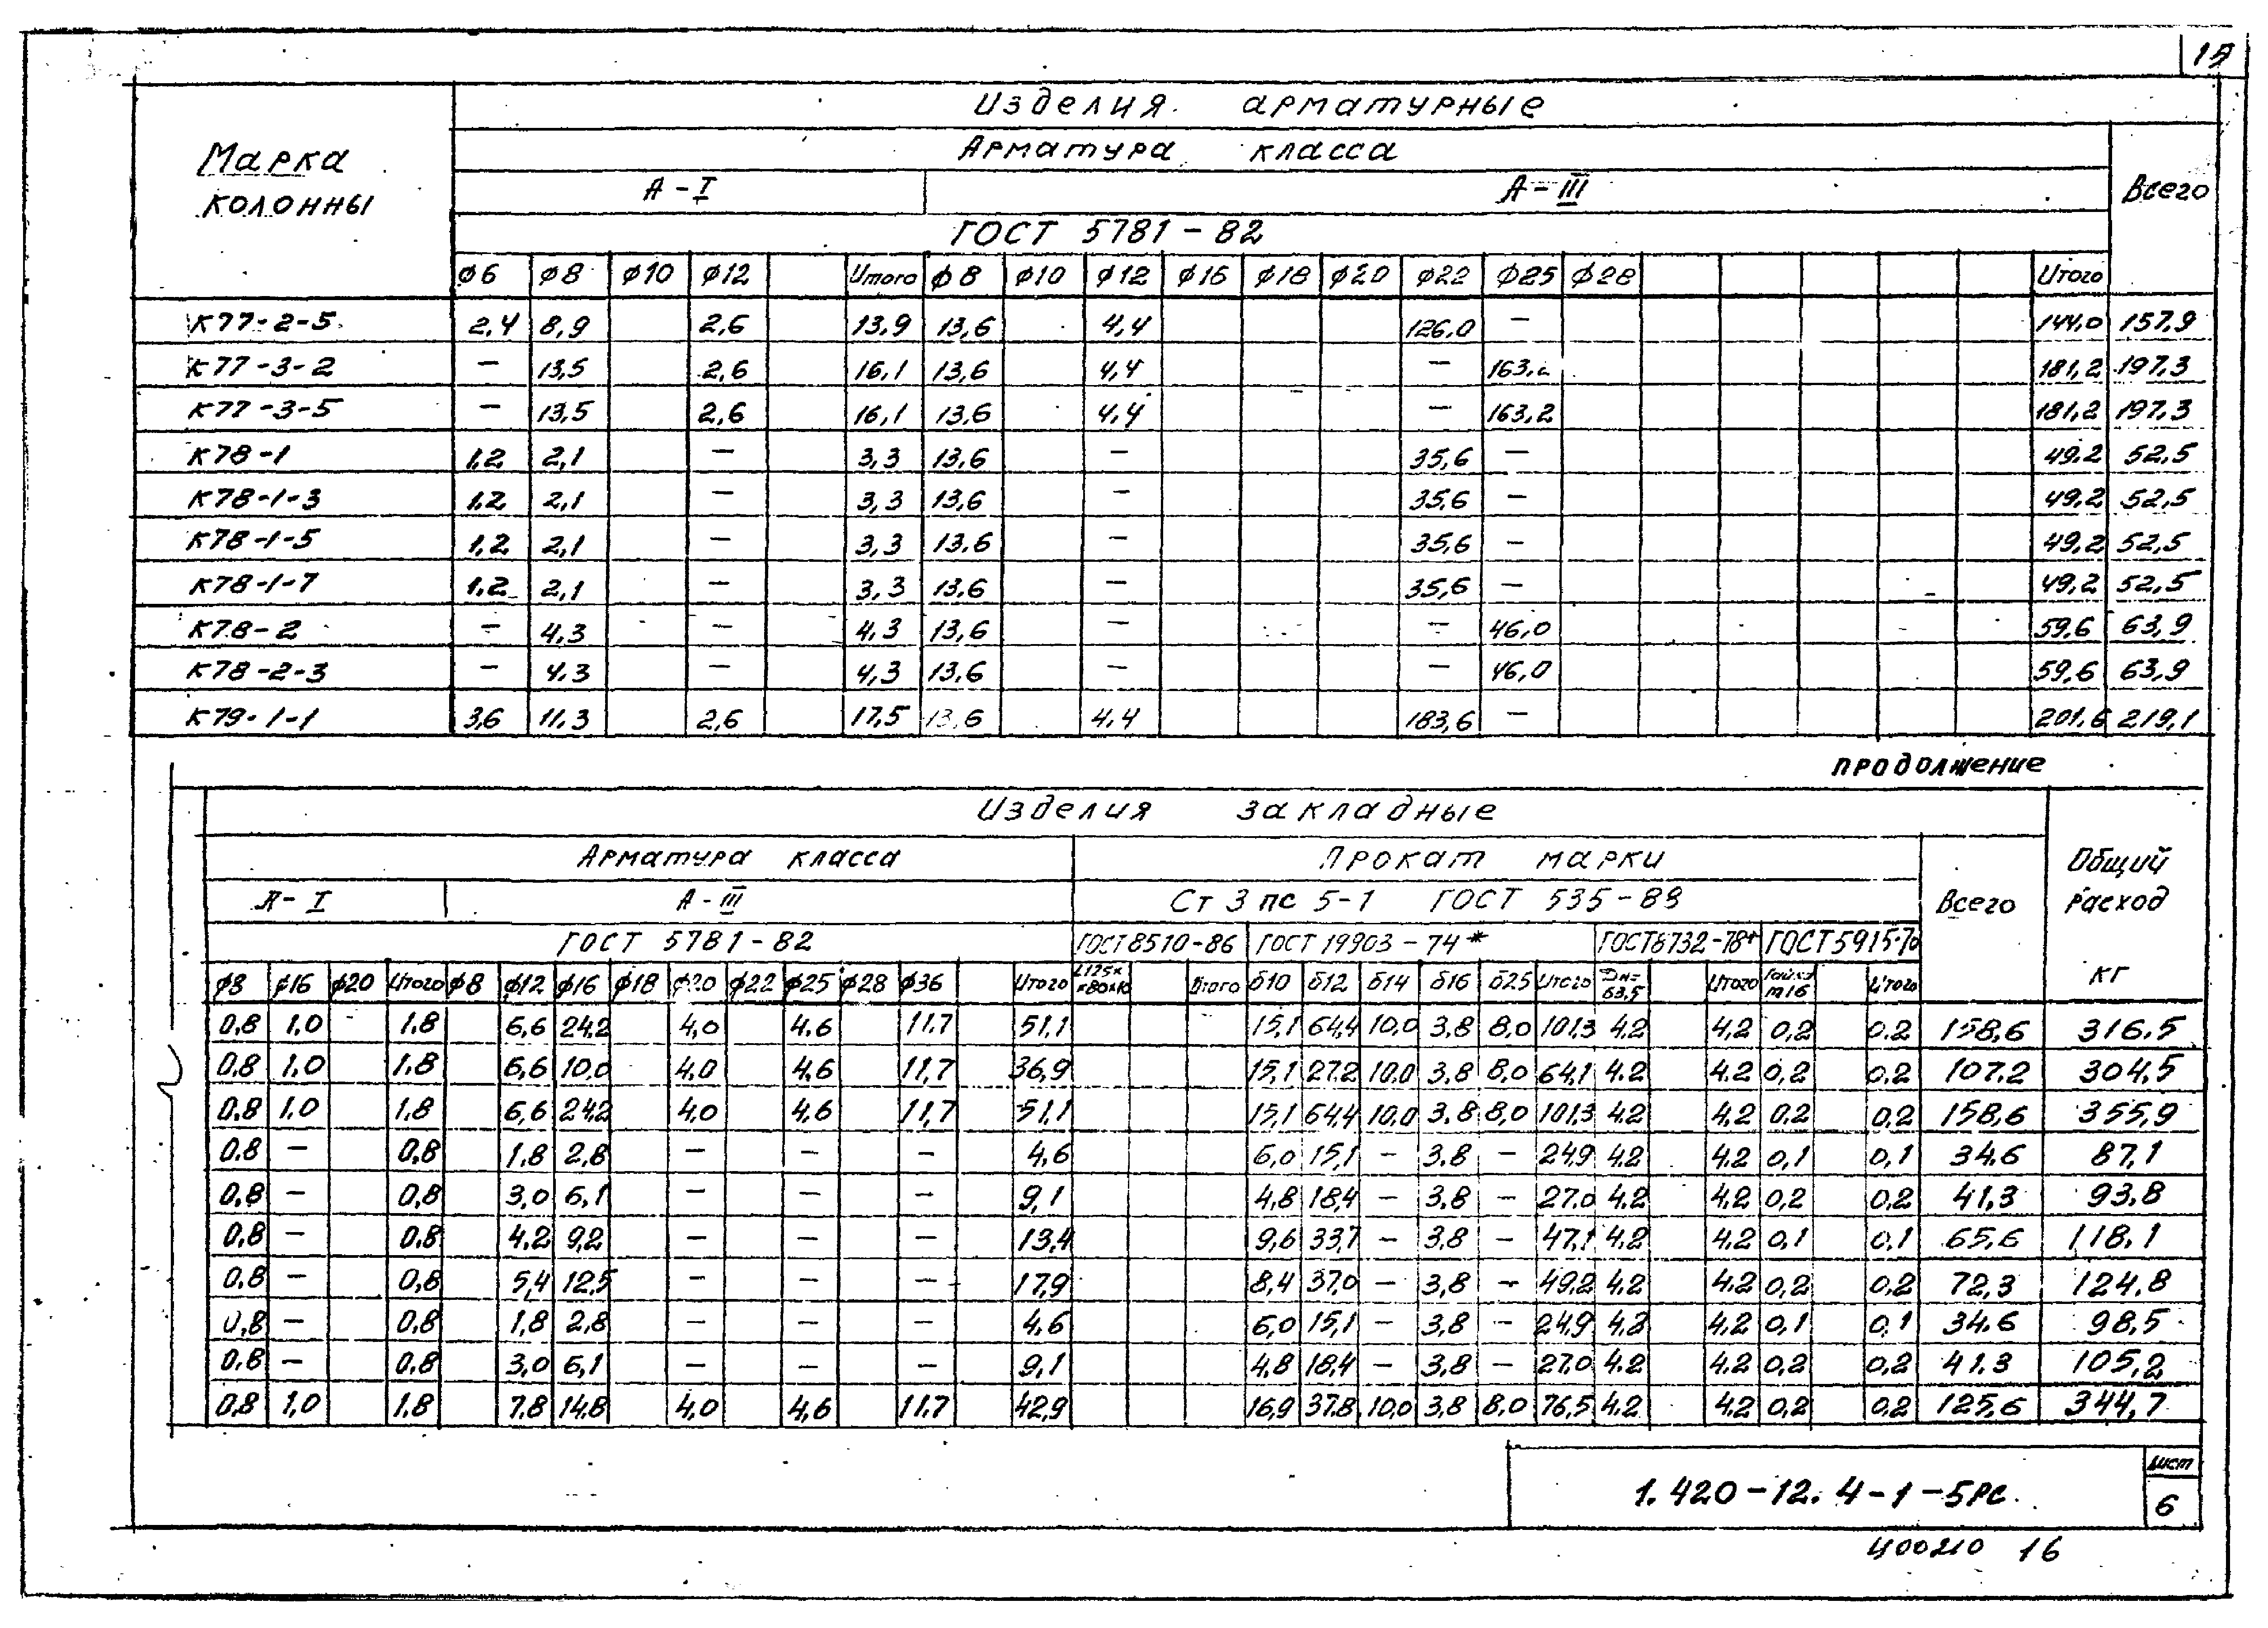 Изделия арматурные
Марка колонны
Арматура класса
Всего
А-I А-III
ГОСТ 5781-82
ф6 ф8 ф10 ф12 Итого ф8 ф10 ф12 ф16 ф18 ф20 ф22 ф25 ф28 Итого
К77-2-5 2,4 8,9 2,6 13,9 13,6 4,4 126,0 — 144,0 157,9
К77-3-2 — 13,5 2,6 16,1 13,6 4,4 — 163,2 181,2 197,3
К77-3-5 — 13,5 2,6 16,1 13,6 4,4 — 163,2 181,2 197,3
К78-1 1,2 2,1 — 3,3 13,6 — 35,6 — 49,2 52,5
К78-1-3 1,2 2,1 — 3,3 13,6 — 35,6 — 49,2 52,5
К78-1-5 1,2 2,1 — 3,3 13,6 — 35,6 — 49,2 52,5
К78-1-7 1,2 2,1 — 3,3 13,6 — 35,6 — 49,2 52,5
К78-2 — 4,3 — 4,3 13,6 — — 46,0 59,6 63,9
К78-2-3 — 4,3 — 4,3 13,6 — — 46,0 59,6 63,9
К79-1-1 3,6 11,3 2,6 17,5 13,6 4,4 183,6 — 201,6 219,1
продолжение
Изделия закладные
Арматура класса Прокат марки
Всего
Общий расход кг
А-I А-III Ст 3 пс 5-1 ГОСТ 535-88
ГОСТ 5781-82 ГОСТ 8510-86 ГОСТ 19903-74* ГОСТ 8732-78* ГОСТ 5915-70
ф8 ф16 ф20 Итого ф8 ф12 ф16 ф18 ф20 ф22 ф25 ф28 ф36 Итого Итого δ10 δ12 δ14 δ16 δ25 Итого Дн=63,5 Итого Гайка м16 Итого
0,8 1,0 - 1,8 6,6 24,2 4,0 4,6 11,7 51,1 15,1 64,4 10,0 3,8 8,0 101,3 4,2 4,2 0,2 0,2 158,6 316,5
0,8 1,0 1,8 6,6 10,0 4,0 4,6 11,7 36,9 15,1 27,2 10,0 3,8 8,0 64,1 4,2 4,2 0,2 0,2 107,2 304,5
0,8 1,0 1,8 6,6 24,2 4,0 4,6 11,7 51,1 15,1 64,4 10,0 3,8 8,0 101,3 4,2 4,2 0,2 0,2 158,6 355,9
0,8 — 0,8 1,8 2,8 — — — 4,6 6,0 15,1 — 3,8 — 24,9 4,2 4,2 0,1 0,1 34,6 87,1
0,8 — 0,8 3,0 6,1 — — — 9,1 4,8 18,4 — 3,8 — 27,0 4,2 4,2 0,2 0,2 41,3 93,8
0,8 — 0,8 4,2 9,2 — — — 13,4 9,6 33,7 — 3,8 — 47,1 4,2 4,2 0,1 0,1 65,6 118,1
0,8 — 0,8 5,4 12,5 — — — 17,9 8,4 37,0 — 3,8 — 49,2 4,2 4,2 0,2 0,2 72,3 124,8
0,8 — 0,8 1,8 2,8 — — — 4,6 6,0 15,1 — 3,8 — 24,9 4,2 4,2 0,1 0,1 34,6 98,5
0,8 — 0,8 3,0 6,1 — — — 9,1 4,8 18,4 — 3,8 — 27,0 4,2 4,2 0,2 0,2 41,3 105,2
0,8 1,0 1,8 7,8 14,8 4,0 4,6 11,7 42,9 16,9 37,8 10,0 3,8 8,0 76,5 4,2 4,2 0,2 0,2 125,6 344,7
1.420-12.4-1-5РС
Лист
6
Ц00210 16